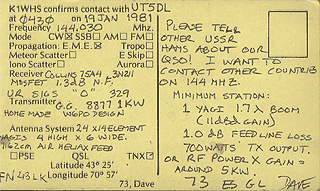 K1WHS confirms contact with UT5DL
at 0420 on 19 JAN 1981
Frequency 144.030 Mhz.
Mode CW SSB AM FM
Propagation: E.M.E. Tropo
Meteor Scatter E Skip
Iono Scatter Aurora
Receiver COLLINS 75A4 3N211
MOSFET 1.3dB N.F.
UR SIGS "O" 329
Transmitter G.G. 8877 1KW
HOME MADE W6PO DESIGN
Antenna System 24 x14 ELEMENT
YAGIS 4 HIGH X 6 WIDE.
1 5/8 CM AIR HELIAX FEED
PSE QSL TNX
Latitude 43° 25'
FN43LK Longitude 70° 57'
73, Dave
PLEASE TELL
OTHER USSR
HAMS ABOUT OUR
QSO! I WANT TO
CONTACT OTHER COUNTRIES
ON 144 MHZ.
MINIMUM STATION:
1 YAGI 1.7λ BOOM
(11dBd GAIN)
1.0 dB FEEDLINE LOSS
700WATTS TX OUTPUT.
OR RF POWER X GAIN =
AROUND 5KW.
73 ES GL DAVE